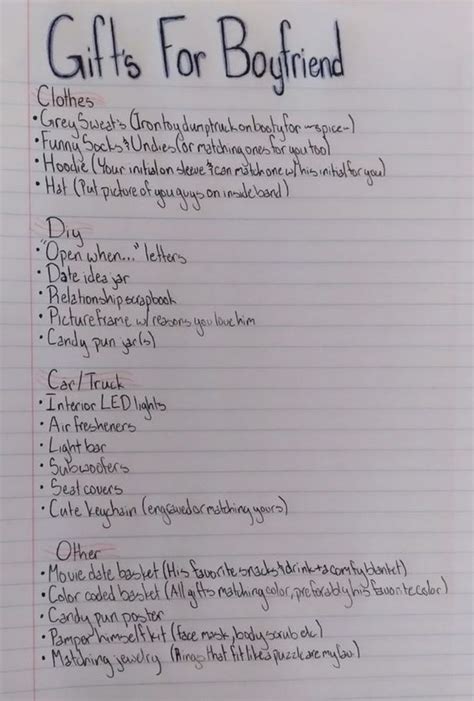 Gift's For Boyfriend
Clothes
• Grey Sweats (Iron toy dumptruck on booty for ~spice~)
• Funny Socks & Undies (or matching ones for you too)
• Hoodie (Your initial on sleeve & can match one w/ his initial for you)
• Hat (Put picture of you guys on inside band)
Diy
• "Open when..." letters
• Date idea jar
• Relationship scrapbook
• Picture frame w/ reasons you love him
• Candy pun jar(s)
Car/Truck
• Interior LED lights
• Air fresheners
• Light bar
• Subwoofers
• Seat covers
• Cute keychain (engraved or matching yours)
Other
• Movie date basket (His favorite snacks & drink + a comfy blanket)
• Color coded basket (All gifts matching color, preferably his favorite color)
• Candy pun poster
• Pamper himself kit (face mask, body scrub etc.)
• Matching jewelry (Rings that fit like a puzzle are my fav.)